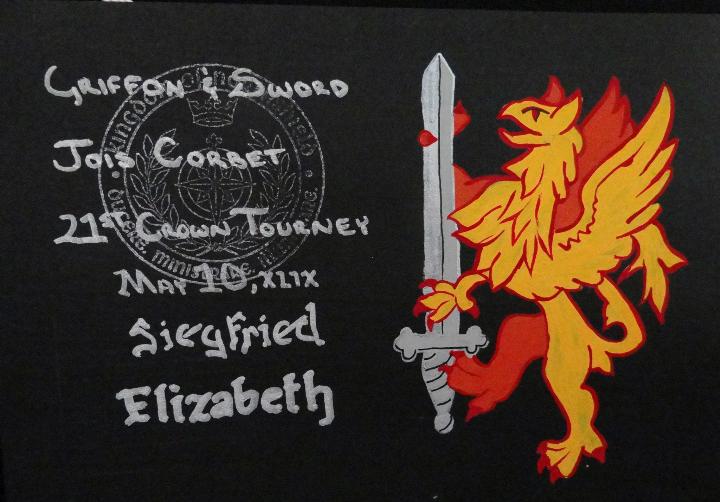 Griffon & Sword
Jois Corbet
21st Crown Tourney
May 10, XLIX
Siegfried
Elizabeth